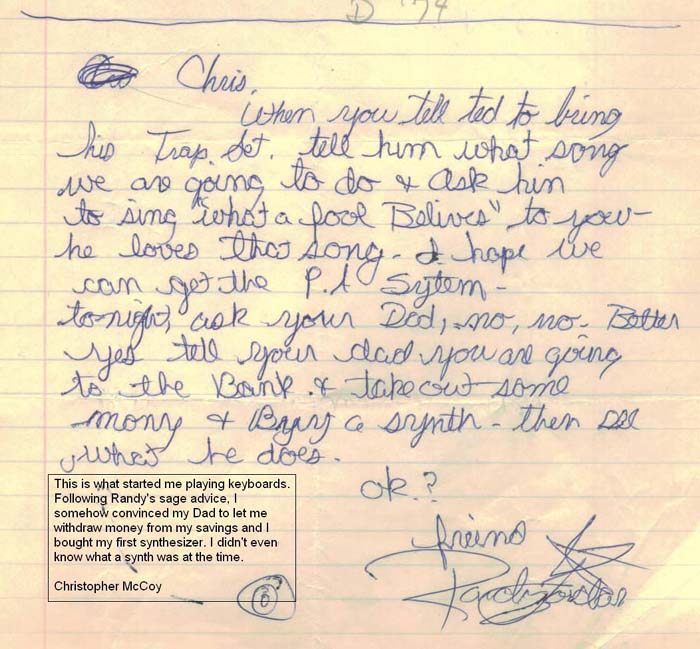 D '74
Chris,
When you tell ted to bring
his Trap Set. tell him what song
we are going to do & ask him
to sing "what a fool Belives" to you-
he loves that song. I hope we
can get the P.A Sytem -
to-night, ask your Dad, no, no. Better
yes tell your dad you are going
to the Bank & take out some
mony & Buy a synth - then see
what he does.
ok.?
freind
Randy
This is what started me playing keyboards.
Following Randy's sage advice, I
somehow convinced my Dad to let me
withdraw money from my savings and I
bought my first synthesizer. I didn't even
know what a synth was at the time.
Christopher McCoy
6